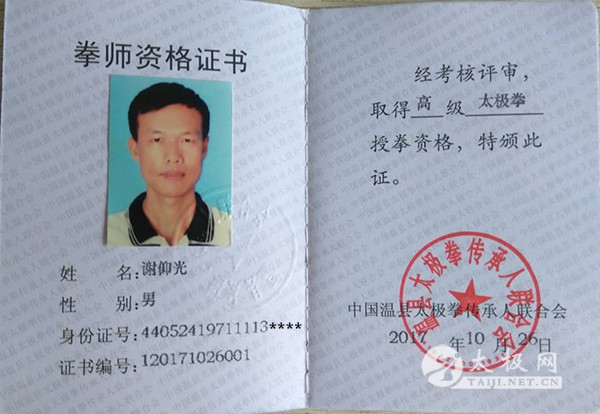 拳师资格证书
姓 名:谢仰光
性 别:男
身份证号:44052419711113****
证书编号:120171026001
经考核评审,
取得高级太极拳
授拳资格,特颁此
证。
温县太极拳传承人联合会
中国温县太极拳传承人联合会
2017 年 10 月 26 日
太极网
TAIJI.NET.CN